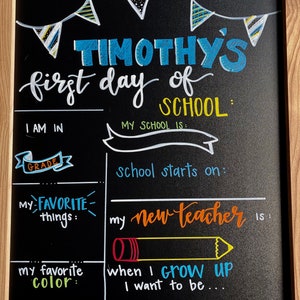 TIMOTHY'S
first day of
SCHOOL:
I AM IN
GRADE
MY SCHOOL IS:
school starts on:
my FAVORITE
things:
my new teacher is:
my favorite
color:
when I GROW UP
I want to be...